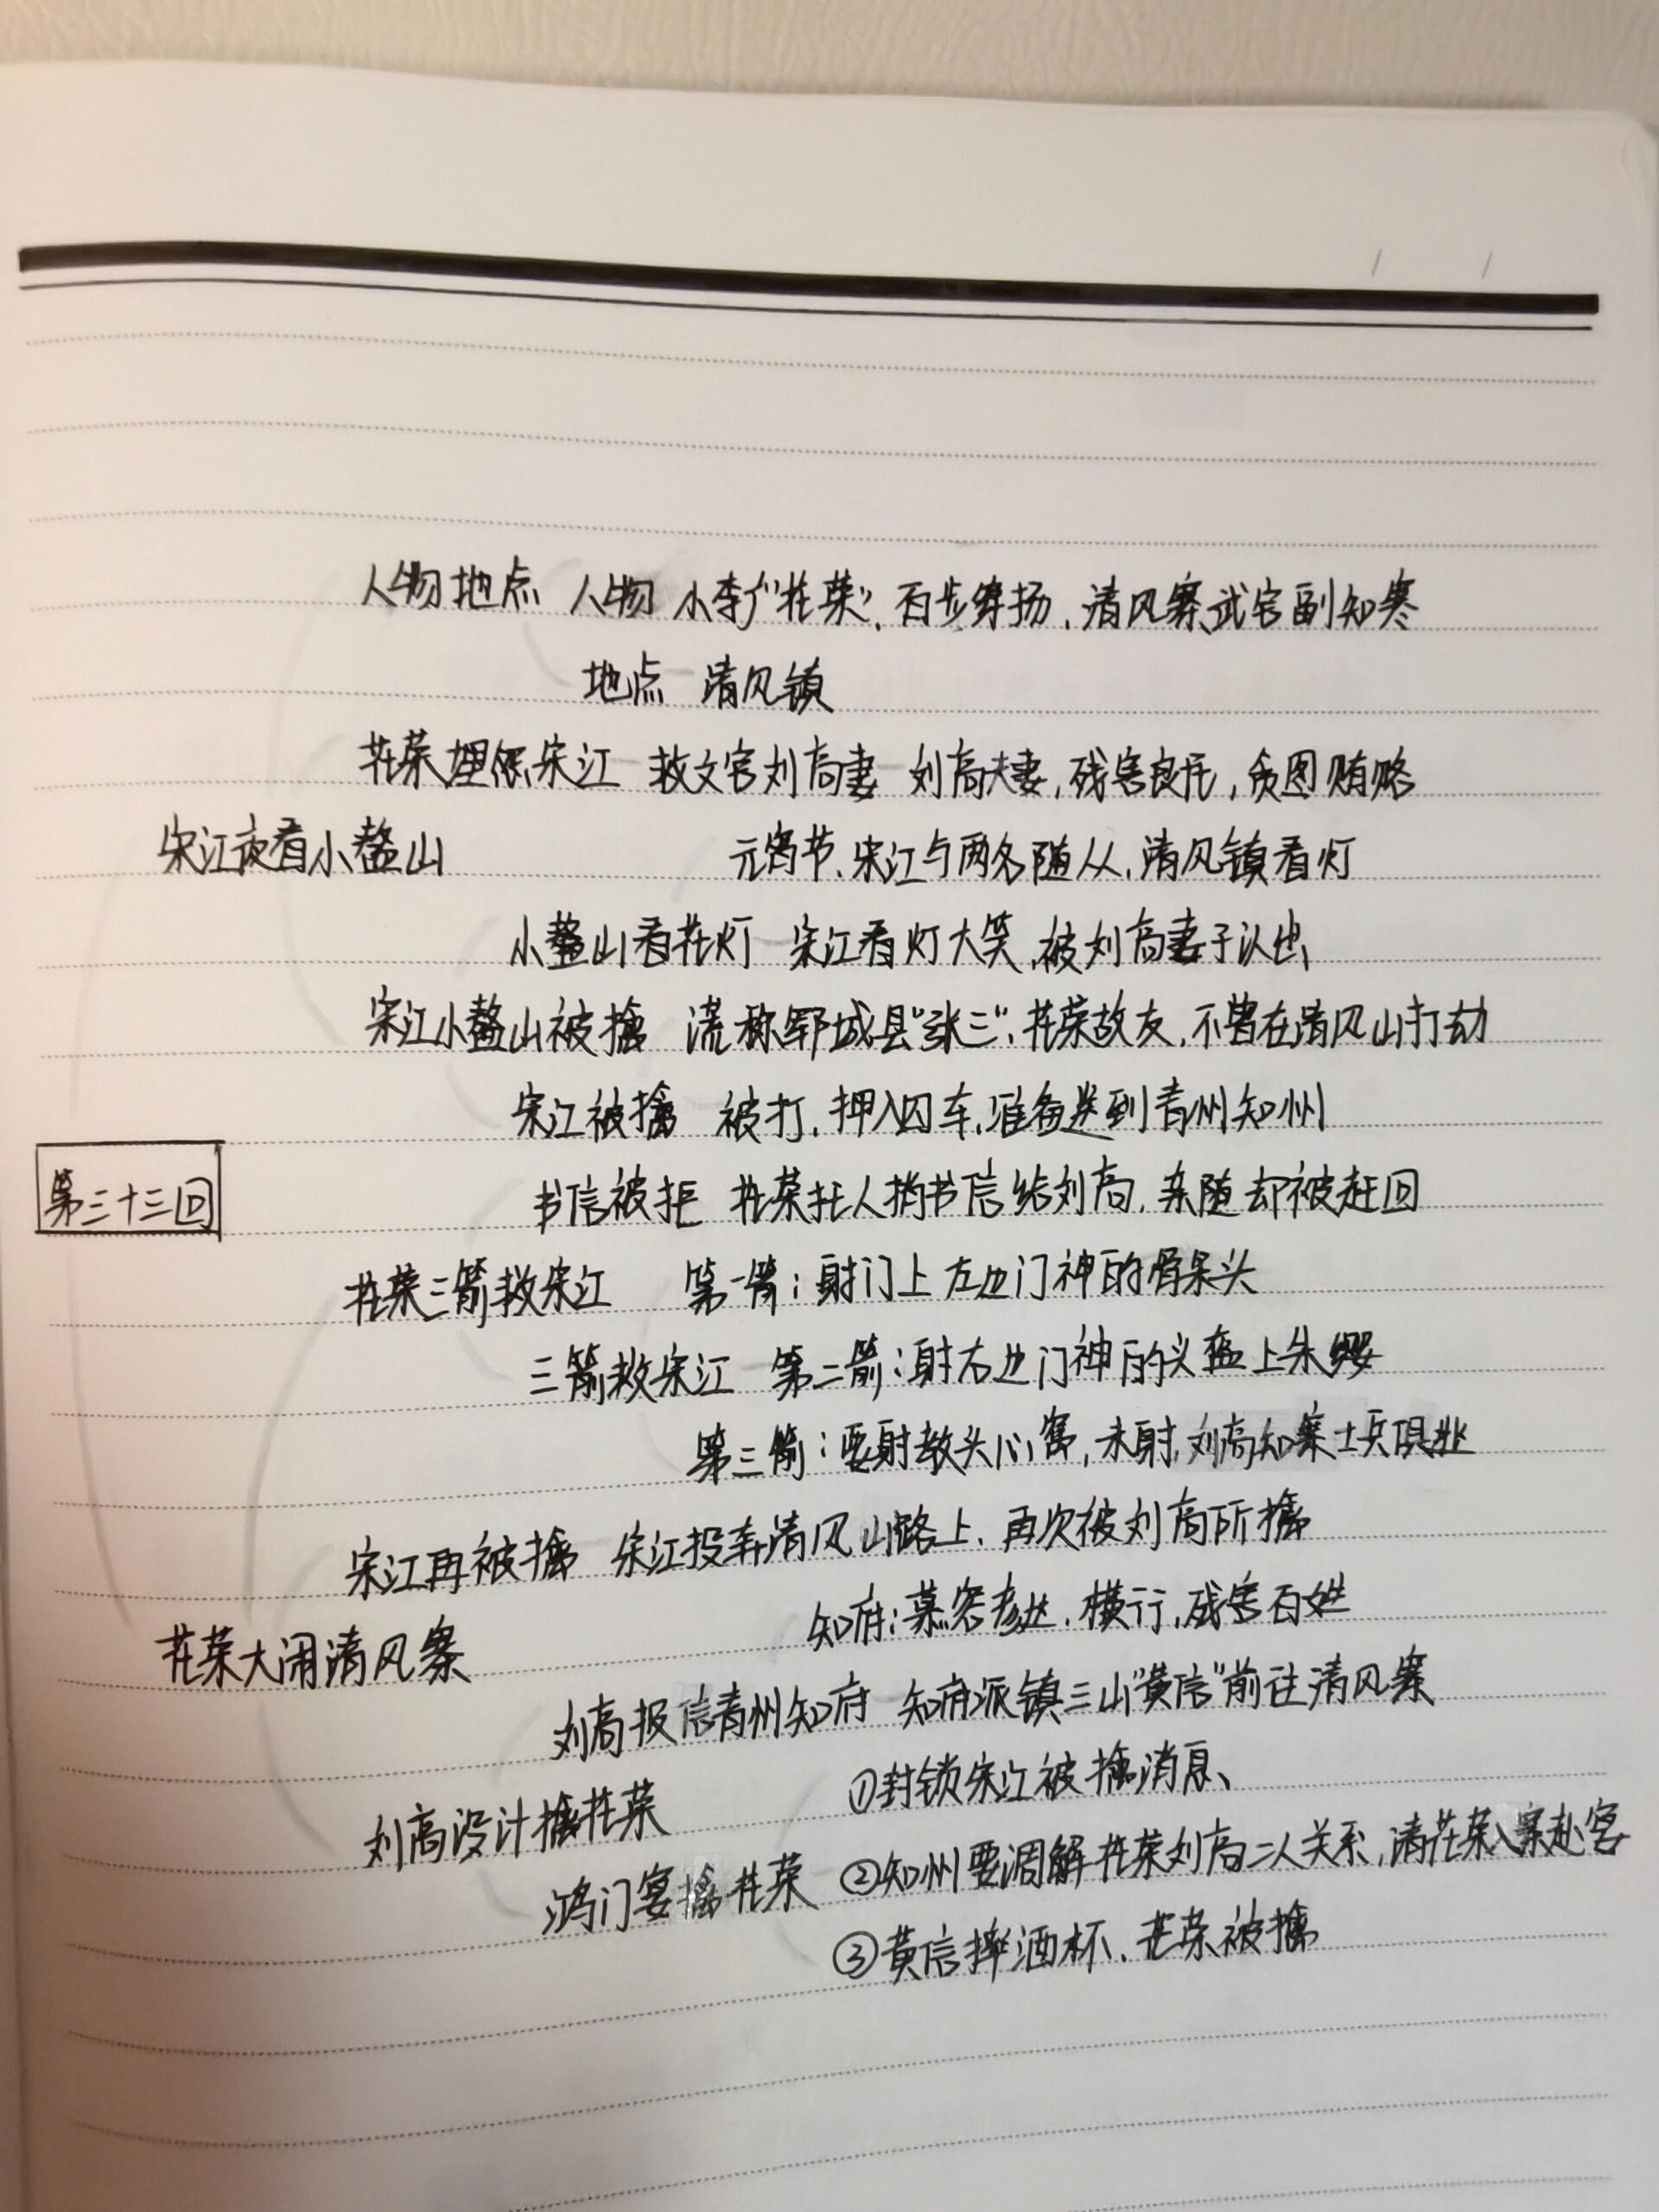 人物地点 人物 小李广"花荣"、百步穿扬、清风寨武官副知寨
地点 清风镇
花荣埋怨宋江 救文官刘高妻 刘高夫妻，残害良民，贪图贿赂
宋江夜看小鳌山 元宵节、宋江与两名随从，清风镇看灯
小鳌山看花灯 宋江看灯大笑，被刘高妻子认出
宋江小鳌山被擒 谎称郓城县"张三"，花荣故友，不曾在清风山打劫
宋江被擒 被打，押入囚车，准备送到青州知州
第三十三回 书信被拒 花荣托人捎书信给刘高，亲随却被赶回
花荣三箭救宋江 第一箭：射门上左边门神的骨朵头
三箭救宋江 第二箭：射右边门神的头盔上朱缨
第三箭：要射教头心窝，未射，刘高知寨士兵俱散
宋江再被擒 宋江投奔清风山路上，再次被刘高所擒
知府：慕容彦达，横行，残害百姓
花荣大闹清风寨
刘高报信青州知府 知府派镇三山"黄信"前往清风寨
①封锁宋江被擒消息、
刘高设计擒花荣
鸿门宴擒花荣 ②知州要调解花荣刘高二人关系，请花荣入寨赴宴
③黄信摔酒杯、花荣被擒